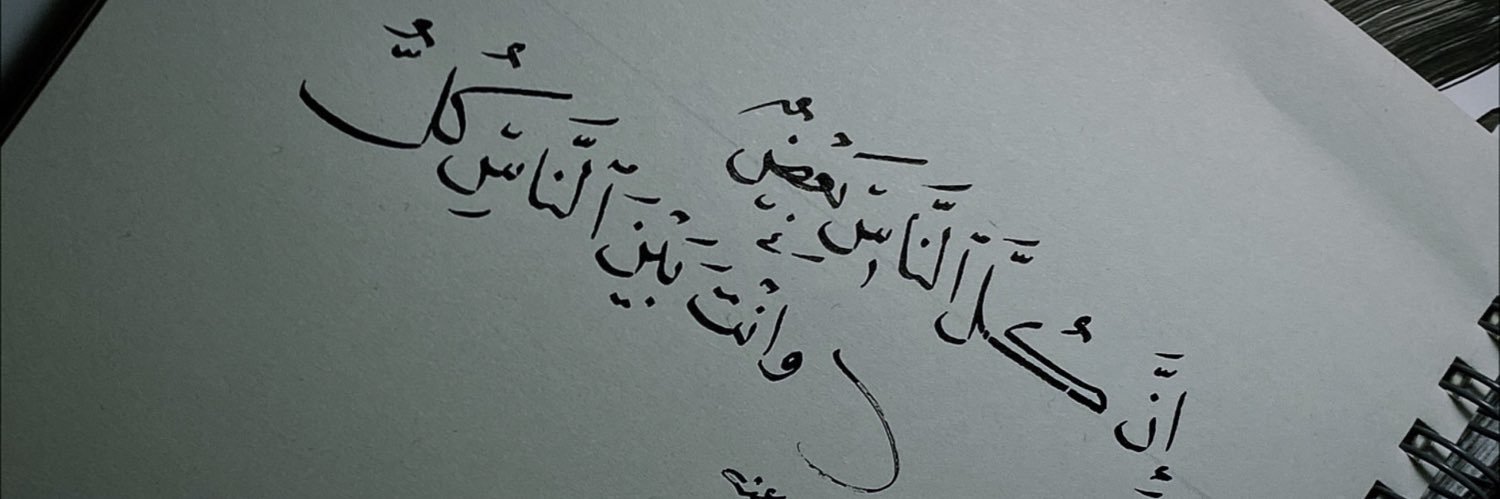 إِنَّ كُلَّ ٱلنَّاسِ بَعْضٌ
وانْتَ بَيْنَ ٱلنَّاسِ كُلٌّ